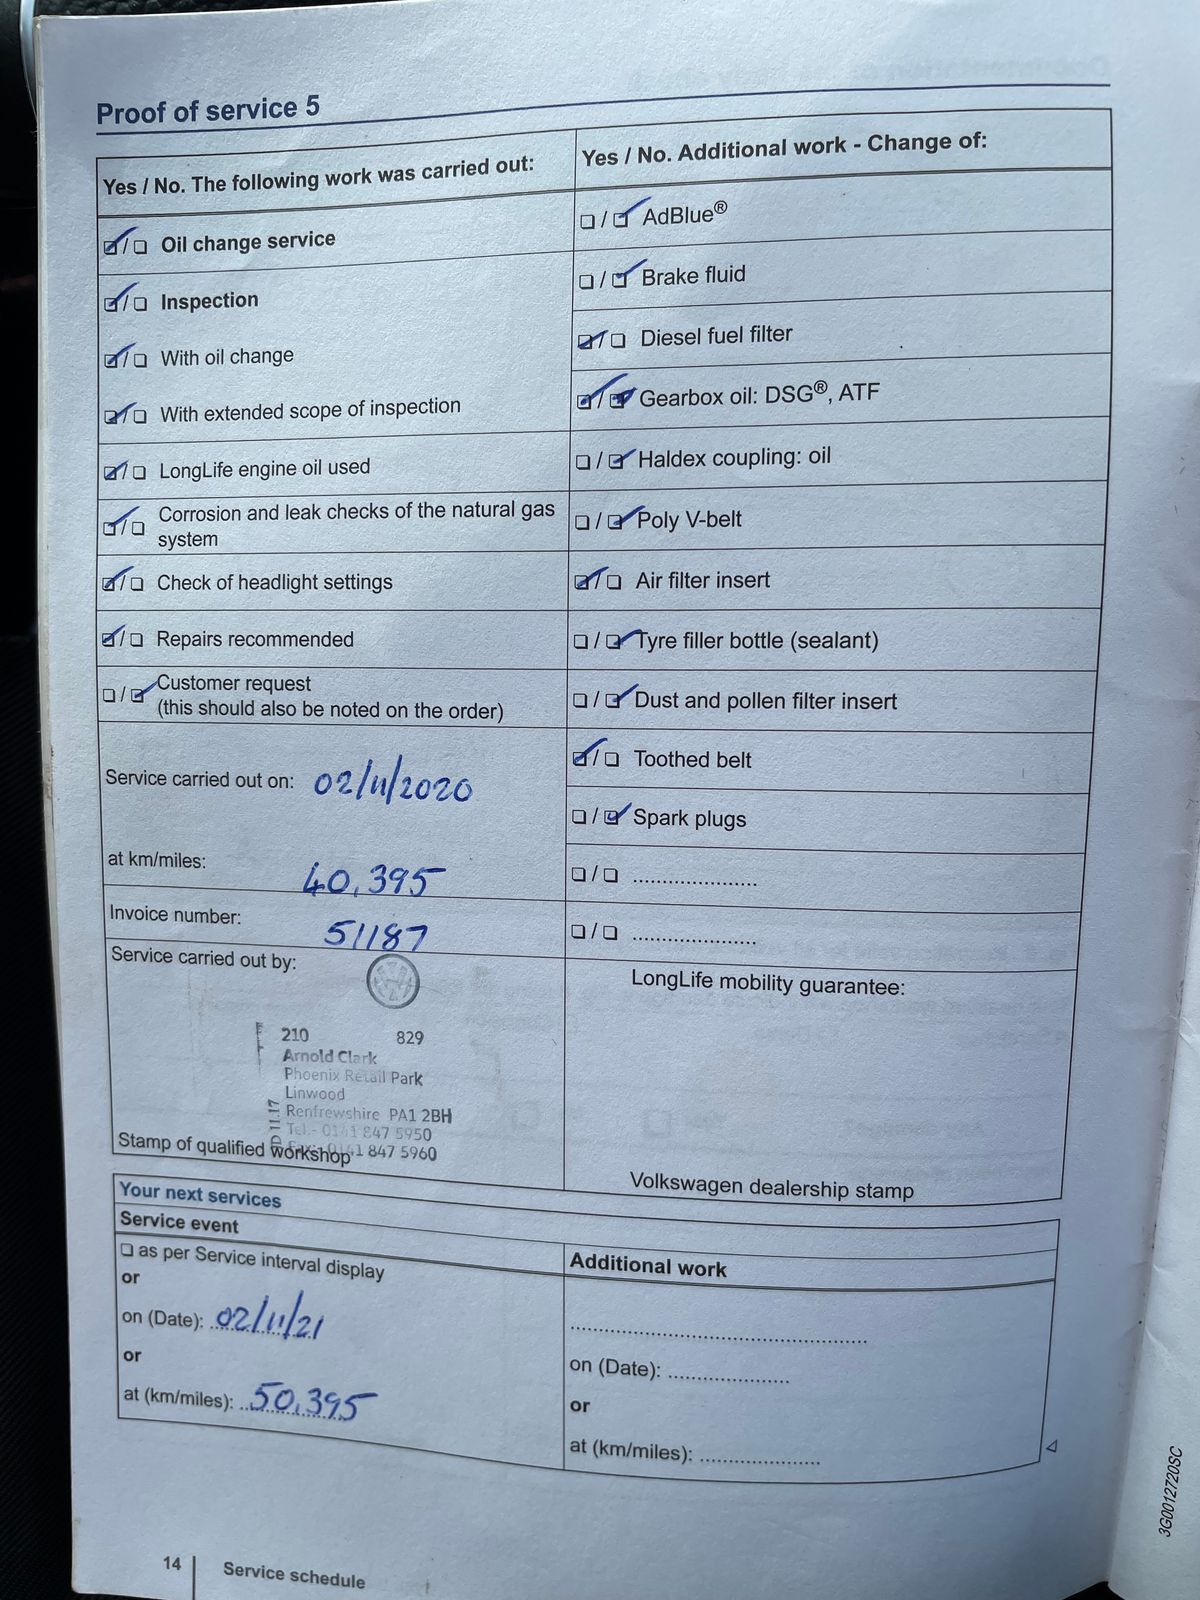 Proof of service 5
Yes / No. The following work was carried out:
☑/☐ Oil change service
☑/☐ Inspection
☑/☐ With oil change
☑/☐ With extended scope of inspection
☑/☐ LongLife engine oil used
☑/☐ Corrosion and leak checks of the natural gas
system
☑/☐ Check of headlight settings
☑/☐ Repairs recommended
☐/☑ Customer request
(this should also be noted on the order)
Service carried out on: 02/11/2020
at km/miles: 40,395
Invoice number: 51187
Service carried out by:
210 829
Arnold Clark
Phoenix Retail Park
Linwood
Renfrewshire PA1 2BH
Tel.- 0141 847 5950
0141 847 5960
11.17
Stamp of qualified workshop
Yes / No. Additional work - Change of:
☐/☑ AdBlue®
☐/☑ Brake fluid
☑/☐ Diesel fuel filter
☑/☑ Gearbox oil: DSG®, ATF
☐/☑ Haldex coupling: oil
☐/☑ Poly V-belt
☑/☐ Air filter insert
☐/☑ Tyre filler bottle (sealant)
☐/☑ Dust and pollen filter insert
☑/☐ Toothed belt
☐/☑ Spark plugs
☐/☐ ......................
☐/☐ ......................
LongLife mobility guarantee:
Volkswagen dealership stamp
Your next services
Service event
☐ as per Service interval display
or
on (Date): 02/11/21
or
at (km/miles): 50,395
Additional work
....................................................
on (Date): .....................
or
at (km/miles): .....................
14 Service schedule
3G0012720SC